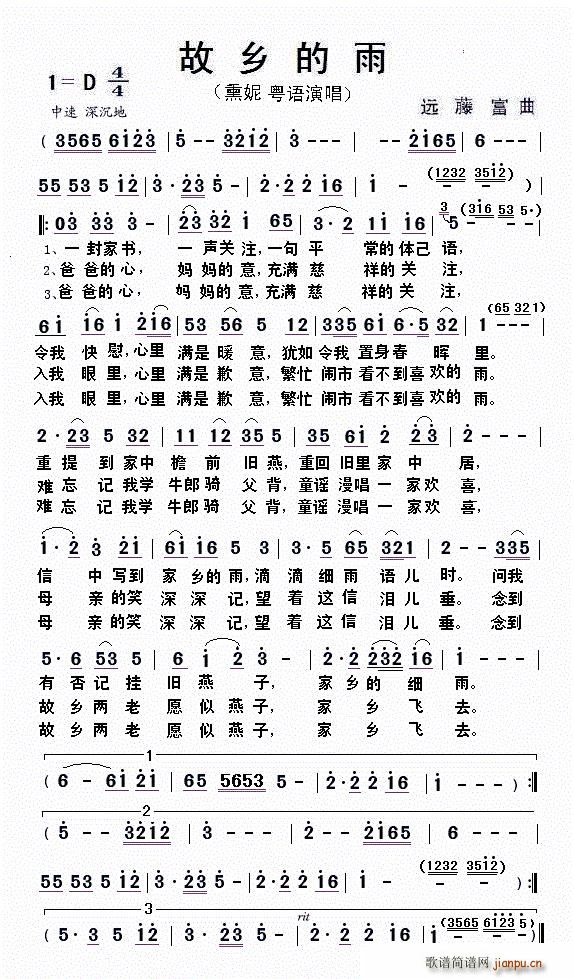 故乡的雨
1=D 4/4
（熏妮 粤语演唱）
中速 深沉地
远藤富曲
( 3565 6123 | 5 - - 3212 | 3 - - - | 2165 | 6 - - -
55 53 5 12 | 3 · 23 5 - | 2 · 2 2 16 | 1 - (1232 3512)
‖: 03 33 3 - | 23 32 1 65 | 3 · 2 11 16 | 5 - (316 53 5·)
1、一封家书， 一声关注，一句平 常的体己语，
2、爸爸的心， 妈妈的意，充满慈 祥的关注，
3、爸爸的心， 妈妈的意，充满慈 祥的关注，
61 16 1 216 | 53 56 5 12 | 335 61 6·5 32 | 1 - - - (65 321)
令我快慰，心里满是暖意，犹如令我置身春晖里。
入我眼里，心里满是歉意，繁忙闹市看不到喜欢的雨。
入我眼里，心里满是歉意，繁忙闹市看不到喜欢的雨。
2 · 23 5 32 | 11 12 55 5 | 35 61 2 23 |
重提到家中檐前旧燕，重回旧里家中居，
难忘记我学牛郎骑父背，童谣漫唱一家欢喜，
难忘记我学牛郎骑父背，童谣漫唱一家欢喜，
1 · 2 3 216 | 61 16 5 3 | 3 · 65 65 321 | 2 - - 335 |
信中写到家乡的雨，滴滴细雨语儿时。问我
母亲的笑深深记，望着这信泪儿垂。念到
母亲的笑深深记，望着这信泪儿垂。念到
5 · 6 53 5 | 56 6 1 2 - | 2 · 2 232 16 | 1 - - - |
有否记挂旧燕子，家乡的细雨。
故乡两老愿似燕子，家乡飞去。
故乡两老愿似燕子，家乡飞去。
1
( 6 - - 61 21 | 65 5653 5 - | 2 · 2 2 16 | 1 - - - ) :‖
2
( 5 - - 3212 | 3 - - - | 2 - - 2165 | 6 - - - |
55 53 5 12 | 3 · 23 5 - | 2 · 2 2 16 | 1 - (1232 3512) :‖
3 rit
( 5 · 3 23 5 - | 2 · 2 2 16 | 1 - (3565 6123 | 5 - ) ‖
歌谱简谱网
jianpu.cn